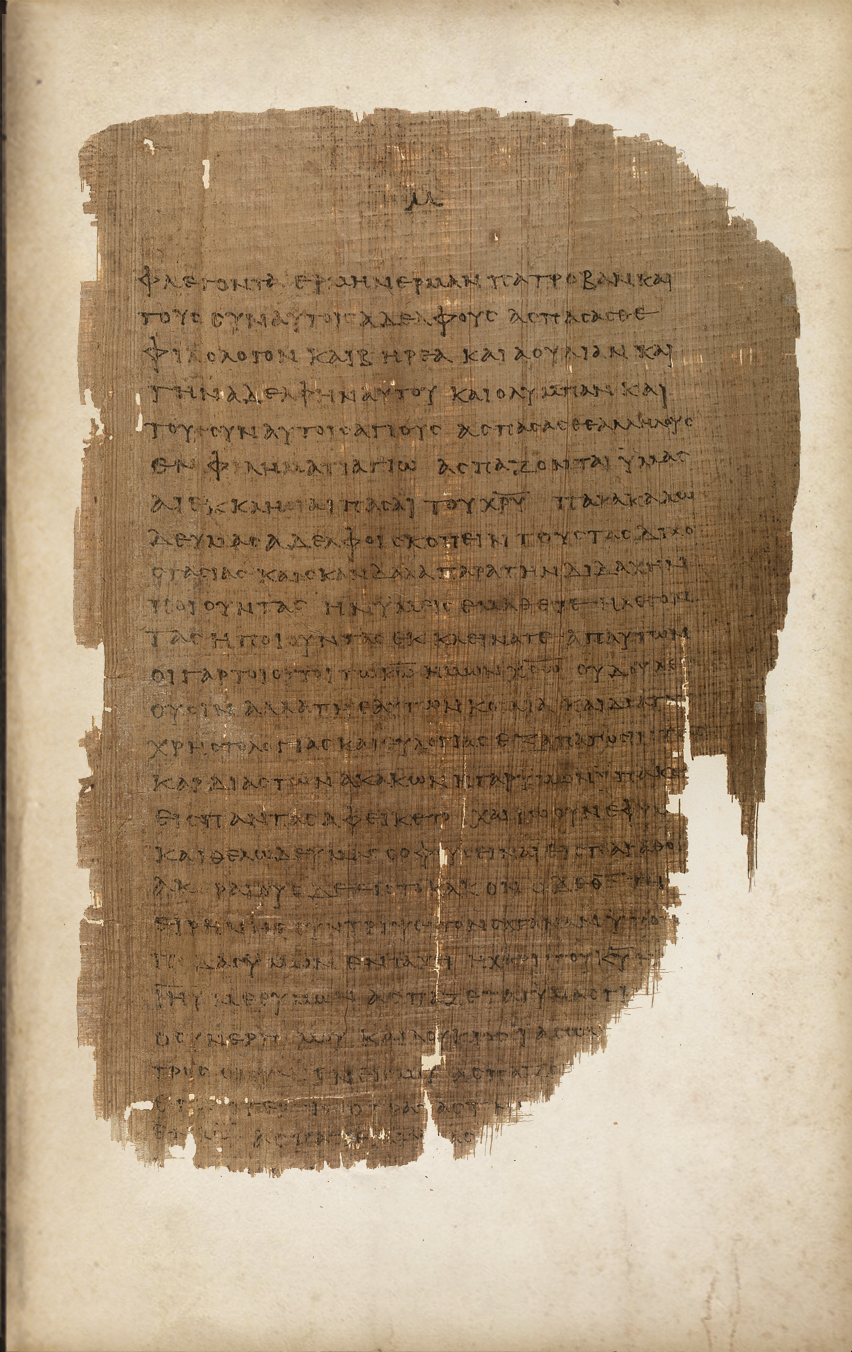 μ
ϕλεγοντα ερμην ερμαν πατροβαν και
τουϲ ϲυν αυτοιϲ αδελϕουϲ αϲπαϲαϲθε
ϕιλολογον και βηρεα και αουλιαν και
την αδελϕην αυτου και ολυμπαν και
τουϲ ϲυν αυτοιϲ αγιουϲ αϲπαϲαϲθε αλληλουϲ
εν ϕιληματι αγιω αϲπαζονται ϋμαϲ
αι εκκληϲιαι παϲαι του χ̅ρ̅υ̅ παρακαλω
δε υμαϲ αδελϕοι ϲκοπειν τουϲ ταϲ διχο
ϲταϲιαϲ και ϲκανδαλα παρα την διδαχην
ποιουνταϲ ην υμειϲ εμαθετε η λεγον
ταϲ η ποιουνταϲ εκκλεινατε απ αυτων
οι γαρ τοιουτοι τω κ̅ω̅ ημων χ̅ρ̅ω̅ ου δουλευ
ουϲιν αλλα τη εαυτων κοιλια και δια τηϲ
χρηϲτολογιαϲ και ευλογιαϲ εξαπατωϲι
καρδιαϲ των ακακων η γαρ υμων υπακο
ειϲ πανταϲ αϕεικετο χαιρω ουν εϕ υ
και θελω δε υμαϲ ϲοϕουϲ ειναι ειϲ το αγαθο
ακεραιουϲ δε ειϲ το κακον ο δε θ̅ϲ̅
ειρηνηϲ ϲυντριψει τον ϲαταναν υπο
ποδαϲ υμων εν ταχει η χαριϲ του κ̅υ̅
ι̅η̅υ̅ μεθ υμων αϲπαζεται υμαϲ τι
ο ϲυνεργ μου και λουκιοϲ ιαϲων
αϲπαζ